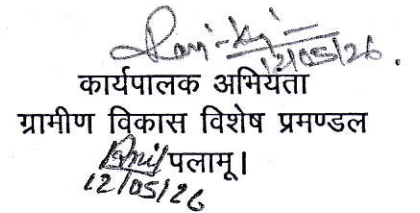 12/05/26.
कार्यपालक अभियंता
ग्रामीण विकास विशेष प्रमण्डल
पलामू।
12/05/26